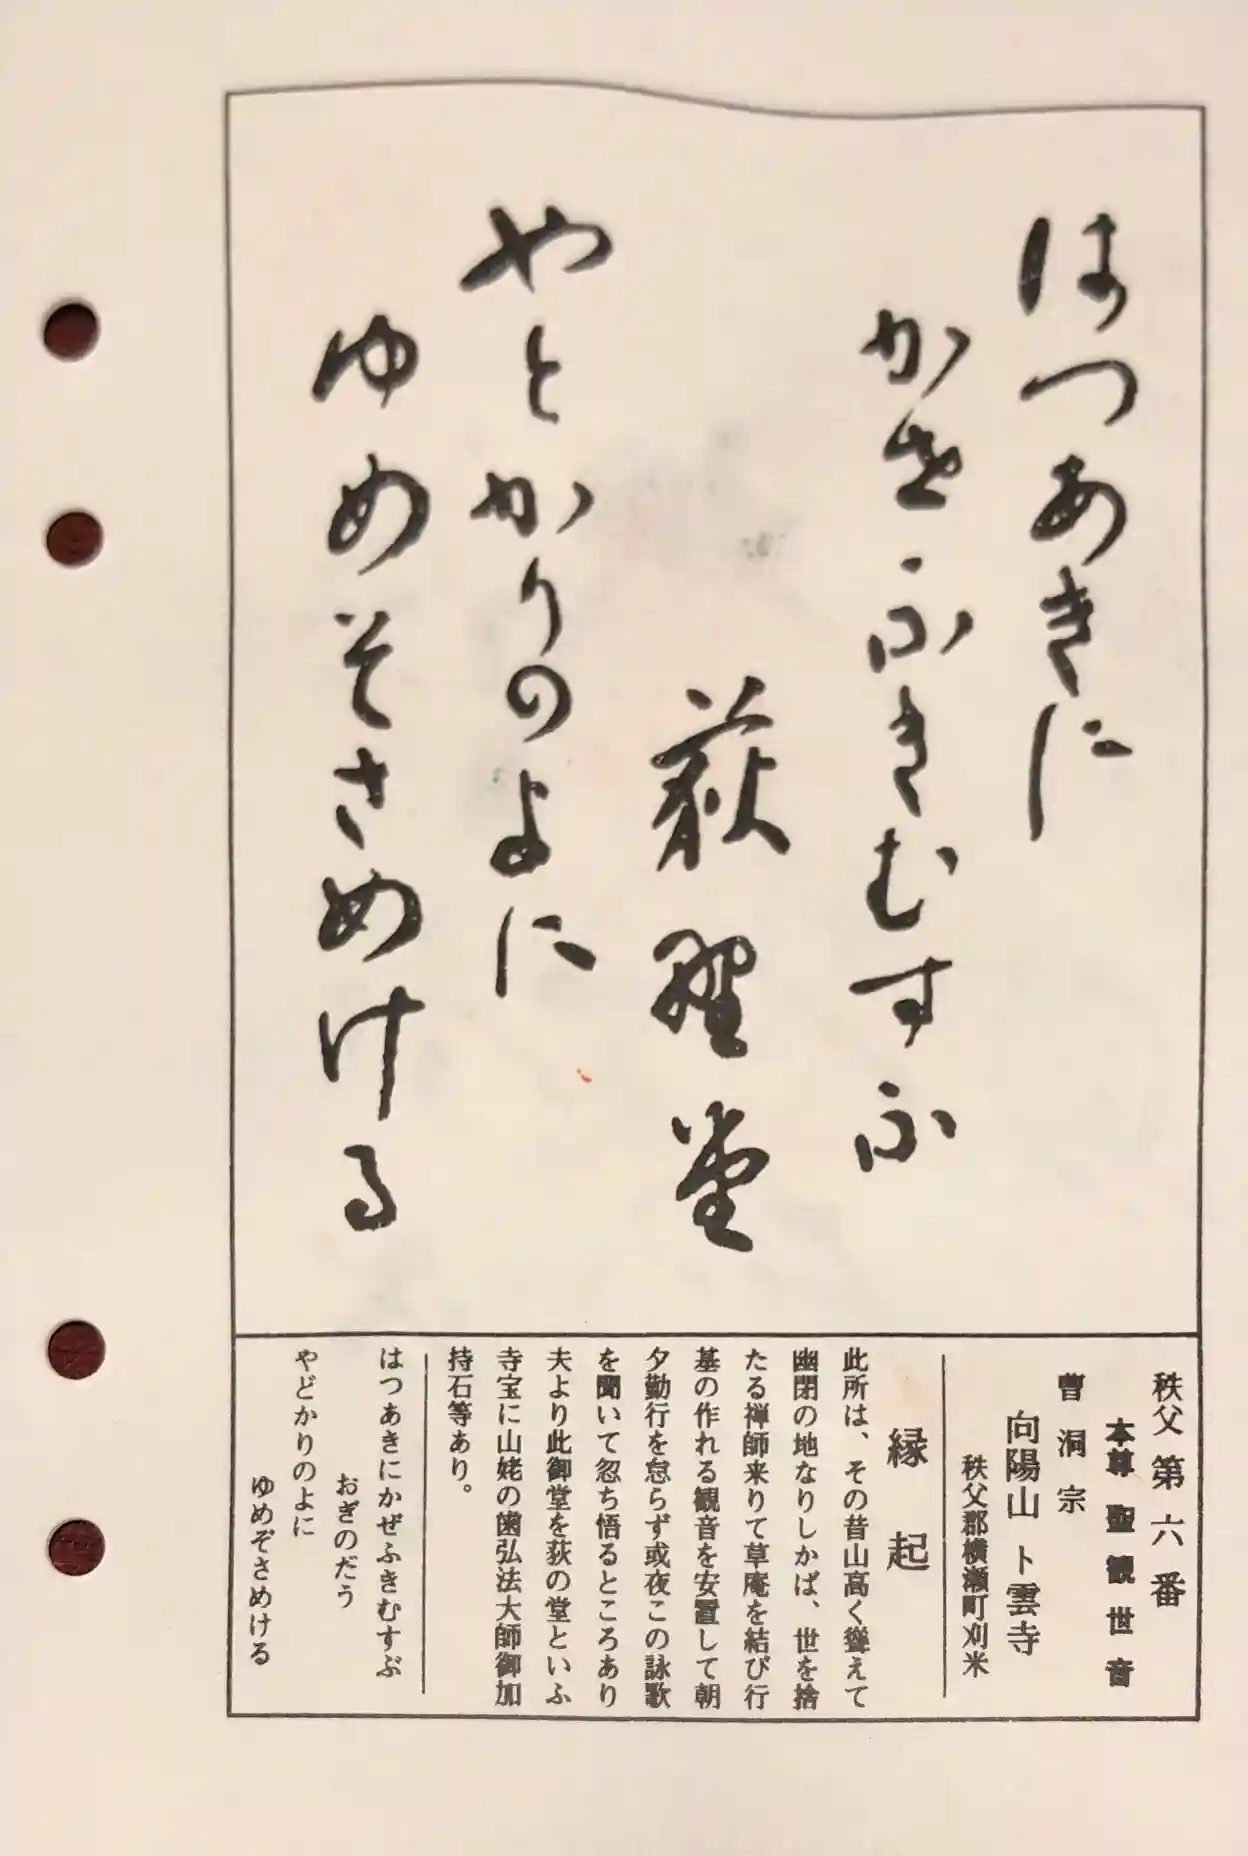 はつあきに
かせふきむすふ
荻野堂
やとかりのよに
ゆめそさめける
秩父第六番
本尊 聖観世音
曹洞宗
向陽山 卜雲寺
秩父郡横瀬町刈米
縁起
此所は、その昔山高く聳えて
幽閉の地なりしかば、世を捨
たる禅師来りて草庵を結び行
基の作れる観音を安置して朝
夕勤行を怠らず或夜この詠歌
を聞いて忽ち悟るところあり
夫より此御堂を荻の堂といふ
寺宝に山姥の歯弘法大師御加
持石等あり。
はつあきにかぜふきむすぶ
おぎのだう
やどかりのよに
ゆめぞさめける